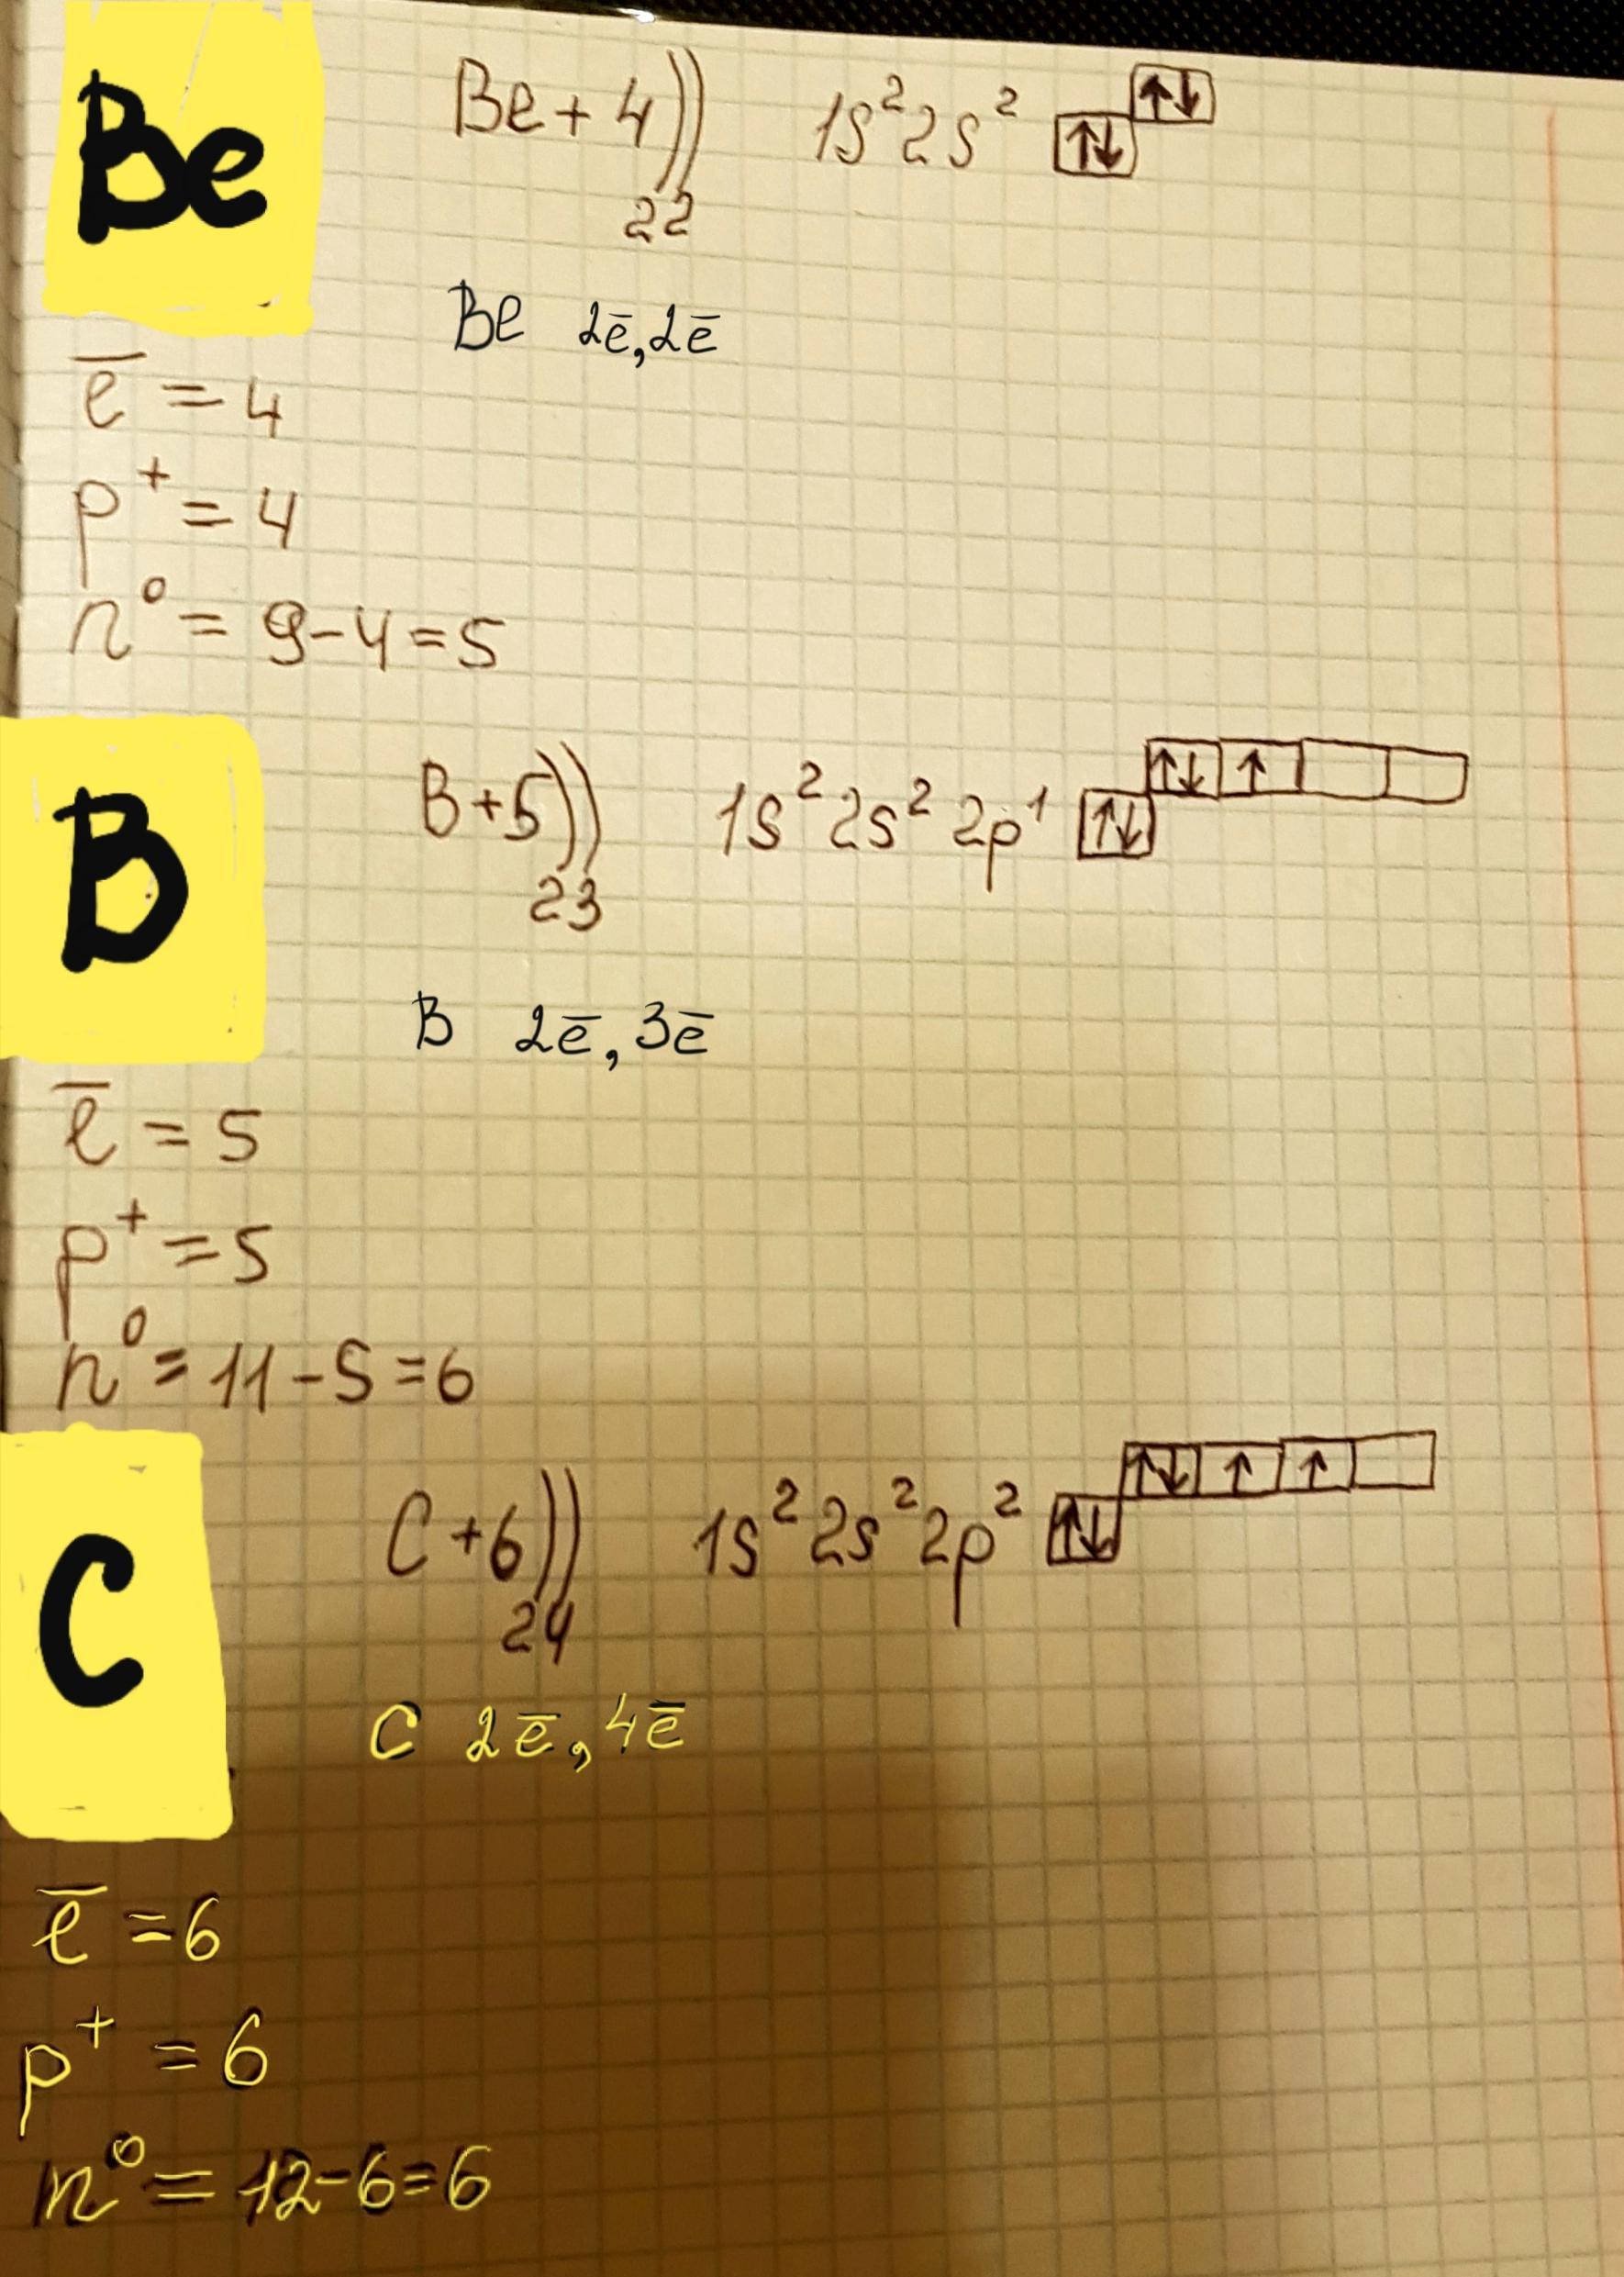 Be
Be + 4)) 1s² 2s² ↑↓ ↑↓
2 2
Be 2ē, 2ē
ē = 4
p⁺ = 4
n⁰ = 9 - 4 = 5
B
B + 5)) 1s² 2s² 2p¹ ↑↓ ↑↓ ↑
2 3
B 2ē, 3ē
ē = 5
p⁺ = 5
n⁰ = 11 - 5 = 6
C
C + 6)) 1s² 2s² 2p² ↑↓ ↑↓ ↑ ↑
2 4
C 2ē, 4ē
ē = 6
p⁺ = 6
n⁰ = 12 - 6 = 6